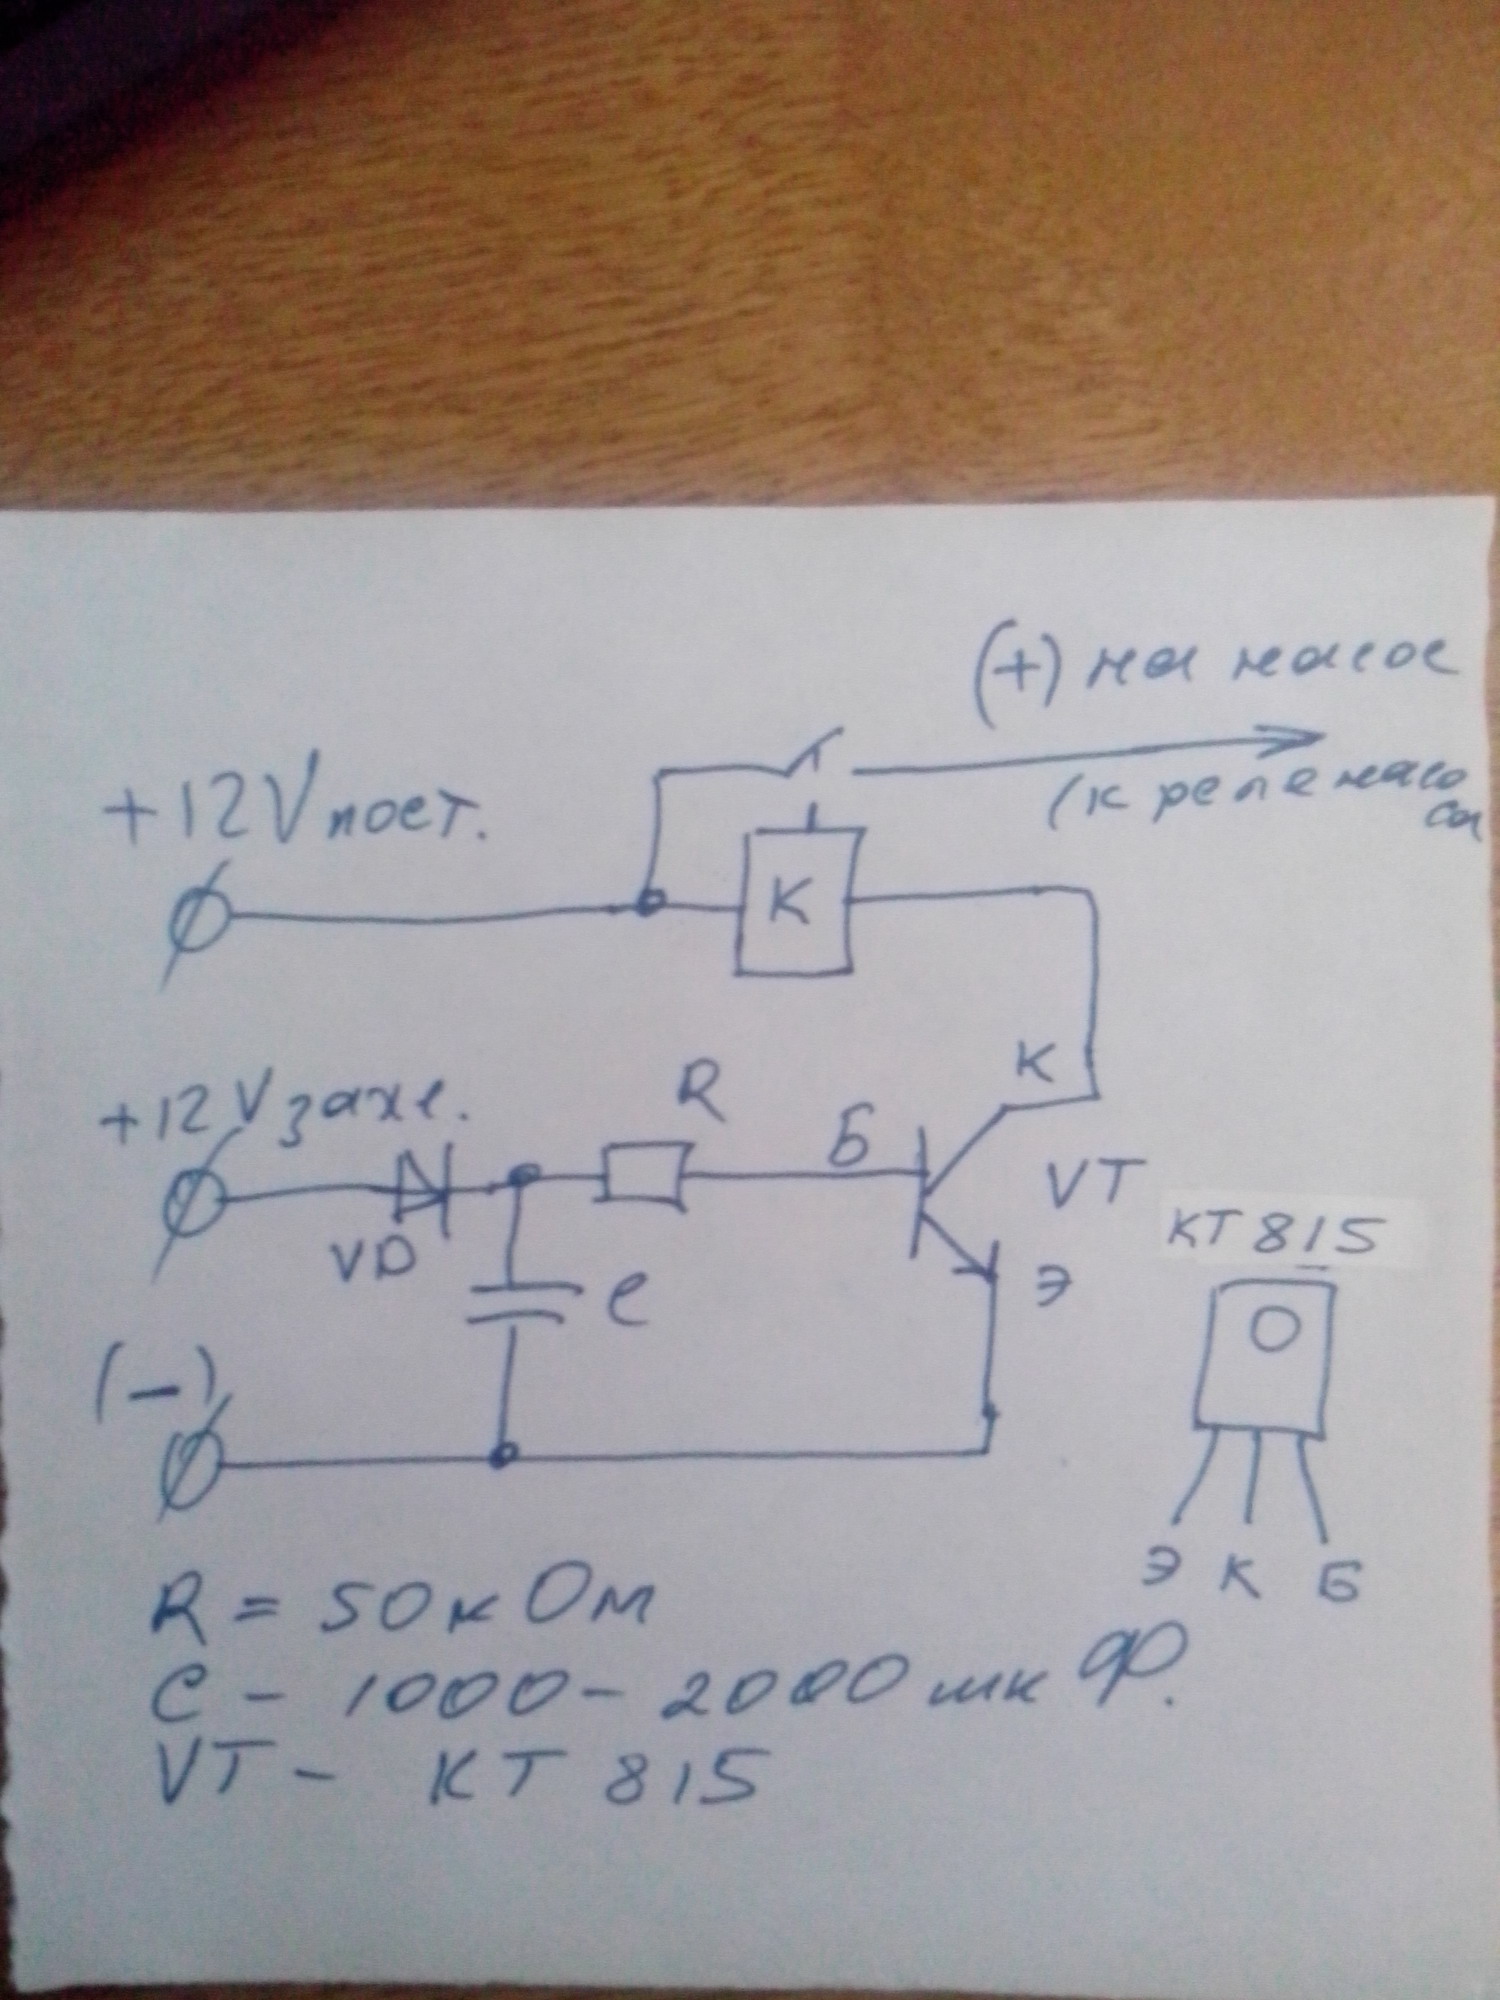 (+) на насос
(к реле насо
са
+12V пост.
К
К
+12V зажг.
R
Б
VT
VD
КТ 815
С
Э
(-)
Э К Б
R = 50 кОм
С - 1000 - 2000 мкФ.
VT - КТ 815